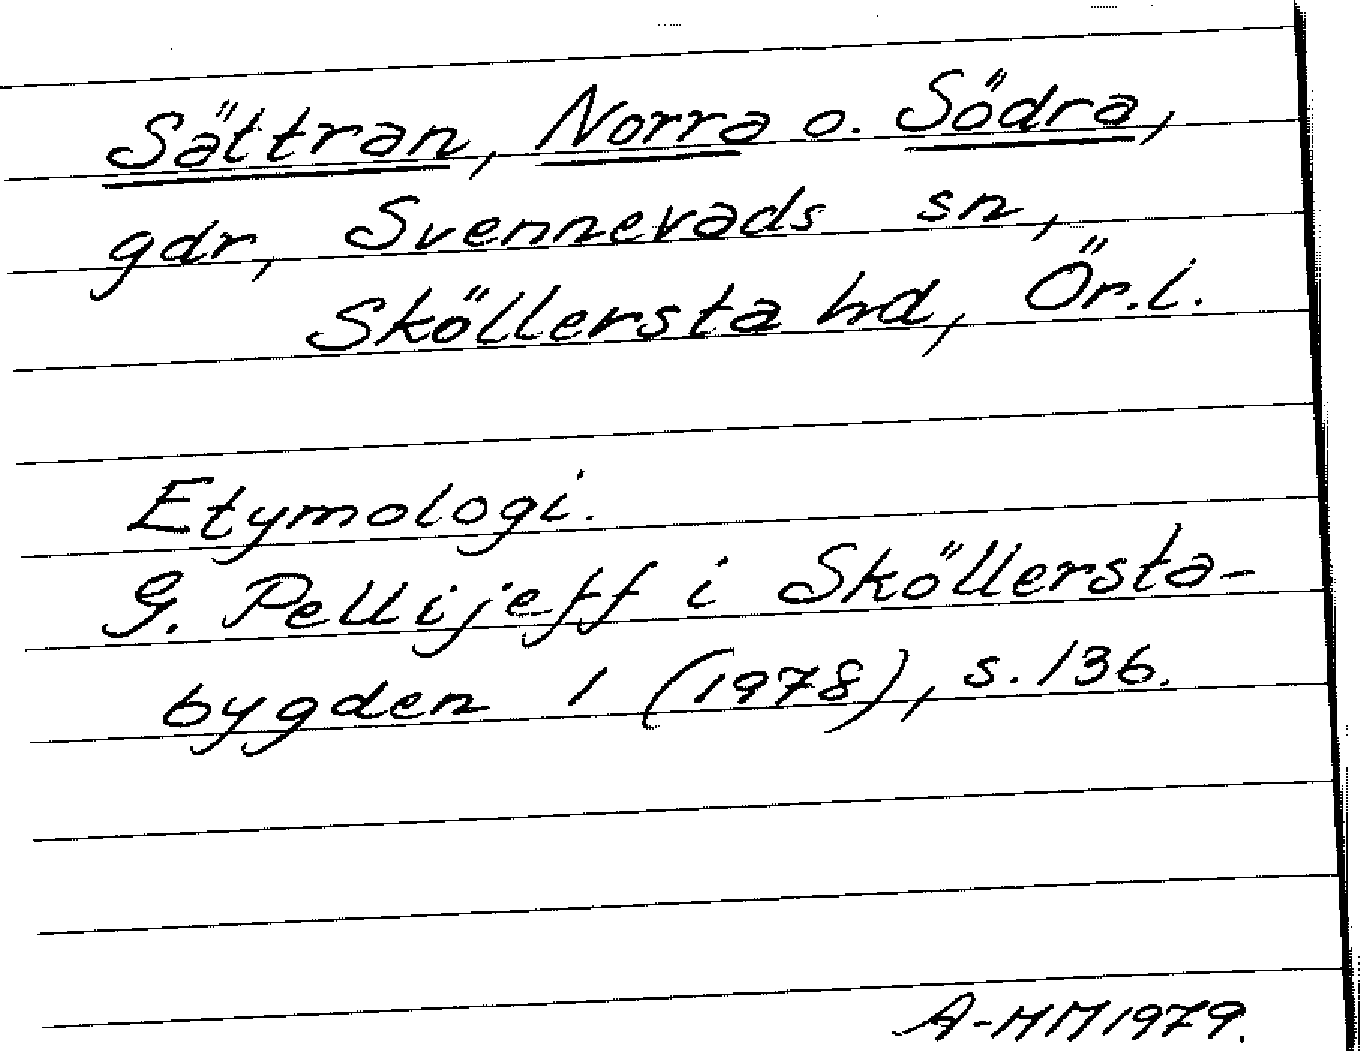 Sättran, Norra o. Södra,
gdr, Svennevads sn,
Sköllersta hd, Ör.l.
Etymologi.
G. Pellijeff i Sköllersta-
bygden 1 (1978), s. 136.
A-MM 1979.